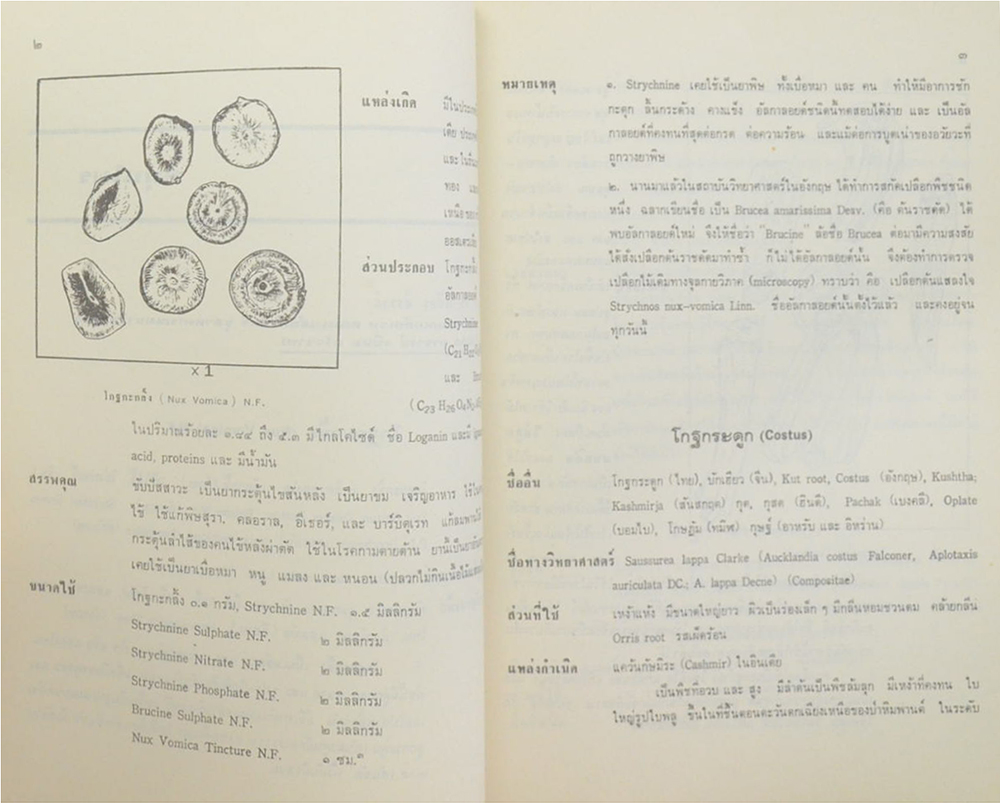 ๒
แหล่งเกิด มีในประเทศ
เดีย ประเทศ
และ ในอิน
ทอง
เหนือ ของ
ออสเตรเลีย
ส่วนประกอบ โกฐกะกลิ้ง
อัลกาลอยด์
Strychnine
และ
(C₂₃ H₂₆ O₄ N₂
×1
โกฐกะกลิ้ง (Nux Vomica) N.F.
ในปริมาณร้อยละ ๑.๔๔ ถึง ๕.๓ มีไกลโคไซด์ ชื่อ Loganin และมี
acid, proteins และ มีน้ำมัน
สรรพคุณ ขับปัสสาวะ เป็นยากระตุ้นไขสันหลัง เป็นยาขม เจริญอาหาร ใช้
ไข้ ใช้แก้พิษสุรา, คลอราล, อีเธอร์, และ บาร์บิตุเรท แก้ลม
กระตุ้นลำไส้ของคนไข้หลังผ่าตัด ใช้ในโรคกามตายด้าน ยานี้เป็นยา
เคยใช้เป็นยาเบื่อหมา หนู แมลง และ หนอน (ปลวกไม่กินเนื้อไม้
ขนาดใช้ โกฐกะกลิ้ง ๐.๑ กรัม, Strychnine N.F. ๑.๕ มิลลิกรัม
Strychnine Sulphate N.F. ๒ มิลลิกรัม
Strychnine Nitrate N.F. ๒ มิลลิกรัม
Strychnine Phosphate N.F. ๒ มิลลิกรัม
Brucine Sulphate N.F. ๒ มิลลิกรัม
Nux Vomica Tincture N.F. ๑ ซม.³
๓
หมายเหตุ ๑. Strychnine เคยใช้เป็นยาพิษ ทั้งเบื่อหมา และ คน ทำให้มีอาการชัก
กะตุก ลิ้นกระด้าง คางแข็ง อัลกาลอยด์ชนิดนี้ทดสอบได้ง่าย และ เป็นอัล
กาลอยด์ที่คงทนที่สุดต่อกรด ต่อความร้อน และแม้ต่อการบูดเน่าของอวัยวะที่
ถูกวางยาพิษ
๒. นานมาแล้วในสถาบันวิทยาศาสตร์ในอังกฤษ ได้ทำการสกัดเปลือกพืชชนิด
หนึ่ง ฉลากเขียนชื่อ เป็น Brucea amarissima Desv. (คือ ต้นราชดัด) ได้
พบอัลกาลอยด์ใหม่ จึงให้ชื่อว่า "Brucine" ล้อชื่อ Brucea ต่อมามีความสงสัย
ได้สั่งเปลือกต้นราชดัดมาทำซ้ำ ก็ไม่ได้อัลกาลอยด์นั้น จึงต้องทำการตรวจ
เปลือกไม้เดิมทางจุลกายวิภาค (microscopy) ทราบว่า คือ เปลือกต้นแสลงใจ
Strychnos nux-vomica Linn. ชื่ออัลกาลอยด์นั้นตั้งไว้แล้ว และคงอยู่จน
ทุกวันนี้
โกฐกระดูก (Costus)
ชื่ออื่น โกฐกระดูก (ไทย), บักเฮียว (จีน), Kut root, Costus (อังกฤษ), Kushtha;
Kashmirja (สันสกฤต) กุต, กุสต (ฮินดี) Pachak (เบงคลี), Oplate
(บอมไบ), โกษฏัม (ทมิฬ) กุษฐ์ (อาหรับ และ อิหร่าน)
ชื่อทางวิทยาศาสตร์ Saussurea lappa Clarke (Aucklandia costus Falconer, Aplotaxis
auriculata DC.; A. lappa Decne) (Compositae)
ส่วนที่ใช้ เหง้าแห้ง มีขนาดใหญ่ยาว ผิวเป็นร่องเล็ก ๆ มีกลิ่นหอมชวนดม คล้ายกลิ่น
Orris root รสเผ็ดร้อน
แหล่งกำเนิด แคว้นกัษมิระ (Cashmir) ในอินเดีย
เป็นพืชที่อวบ และ สูง มีลำต้นเป็นพืชล้มลุก มีเหง้าที่คงทน ใบ
ใหญ่รูปใบพลู ขึ้นในที่ชื้นตอนตะวันตกเฉียงเหนือของป่าหิมพานต์ ในระดับ